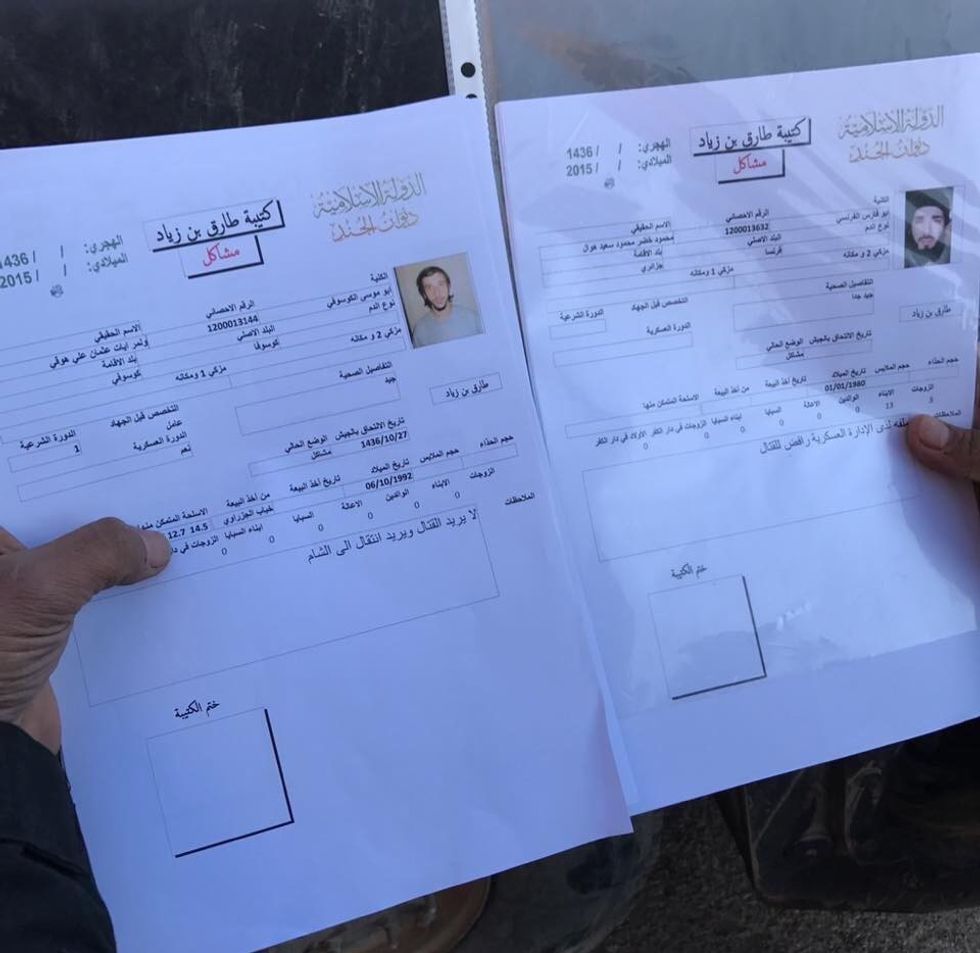 الدولة الإسلامية
ديوان الجند
كتيبة طارق بن زياد
مشاكل
الهجري: / / 1436
الميلادي: / / 2015
الكنية
الرقم الاحصائي
الاسم الحقيقي
ابو فارس الفرنسي
1200013632
محمود خضر محمود سعيد هوال
نوع الدم
البلد الاصلي
بلد الاقامة
فرنسا
جزائري
مزكي 2 و مكانه
مزكي 1 ومكانه
التفاصيل الصحية
التخصص قبل الجهاد
الدورة الشرعية
جيد جدا
الدورة العسكرية
طارق بن زياد
تاريخ الالتحاق بالجيش
الوضع الحالي
مشاكل
حجم الحذاء
حجم الملابس
تاريخ الميلاد
تاريخ أخذ البيعة
من أخذ البيعة
الاسلحة المتمكن منها
01/01/1980
الزوجات
الابناء
الوالدين
الاعالة
السبايا
ابناء السبايا
الزوجات في دار الكفر
الاولاد في دار الكفر
3
13
0
0
0
0
0
0
الملاحظات
لدى الإدارة العسكرية رافض للقتال
ختم الكتيبة
الدولة الإسلامية
ديوان الجند
كتيبة طارق بن زياد
مشاكل
الهجري: / / 1436
الميلادي: / / 2015
الكنية
الرقم الاحصائي
الاسم الحقيقي
ابو موسى الكوسوفي
1200013144
عثمان علي هوقي
نوع الدم
البلد الاصلي
بلد الاقامة
كوسوفا
كوسوفي
مزكي 2 و مكانه
مزكي 1 ومكانه
التفاصيل الصحية
التخصص قبل الجهاد
الدورة الشرعية
جيد
عامل
1
الدورة العسكرية
نعم
طارق بن زياد
تاريخ الالتحاق بالجيش
الوضع الحالي
1436/10/27
مشاكل
حجم الحذاء
حجم الملابس
تاريخ الميلاد
تاريخ أخذ البيعة
من أخذ البيعة
الاسلحة المتمكن منها
06/10/1992
خباب الجزراوي
14.5 12.7
الزوجات
الابناء
الوالدين
الاعالة
السبايا
ابناء السبايا
الزوجات في
0
0
0
0
0
0
الملاحظات
لا يريد القتال ويريد انتقال الى الشام
ختم الكتيبة